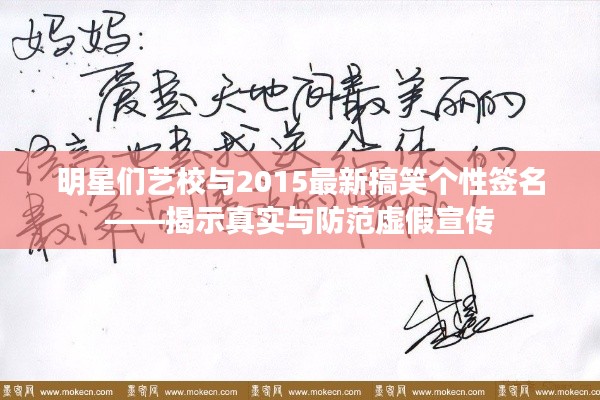 妈妈：
爱是天地间最美丽的
也是我送
明星们艺校与2015最新搞笑个性签名
——揭示真实与防范虚假宣传
墨客网 www.mokecn.com 墨客网 www.mokecn.com 墨客网 www.mokecn.com 墨客网 www.mokecn.com